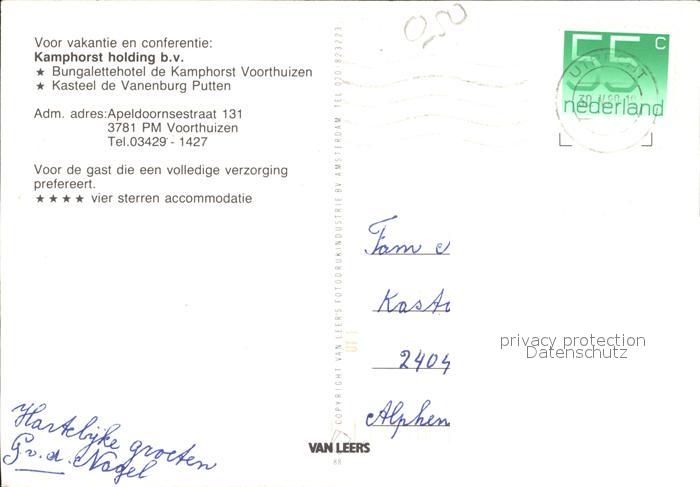 Voor vakantie en conferentie:
Kamphorst holding b.v.
★ Bungalettehotel de Kamphorst Voorthuizen
★ Kasteel de Vanenburg Putten
Adm. adres: Apeldoornsestraat 131
3781 PM Voorthuizen
Tel.03429 - 1427
Voor de gast die een volledige verzorging
prefereert.
★★★★ vier sterren accommodatie
Hartelijke groeten
G. v. d. Nagel
© COPYRIGHT VAN LEER'S FOTODRUKINDUSTRIE BV AMSTERDAM TEL 020 823223
VAN LEERS
88
250
55 c
nederland
UTRECHT
Fam
Kast
2404
Alphen
privacy protection
Datenschutz